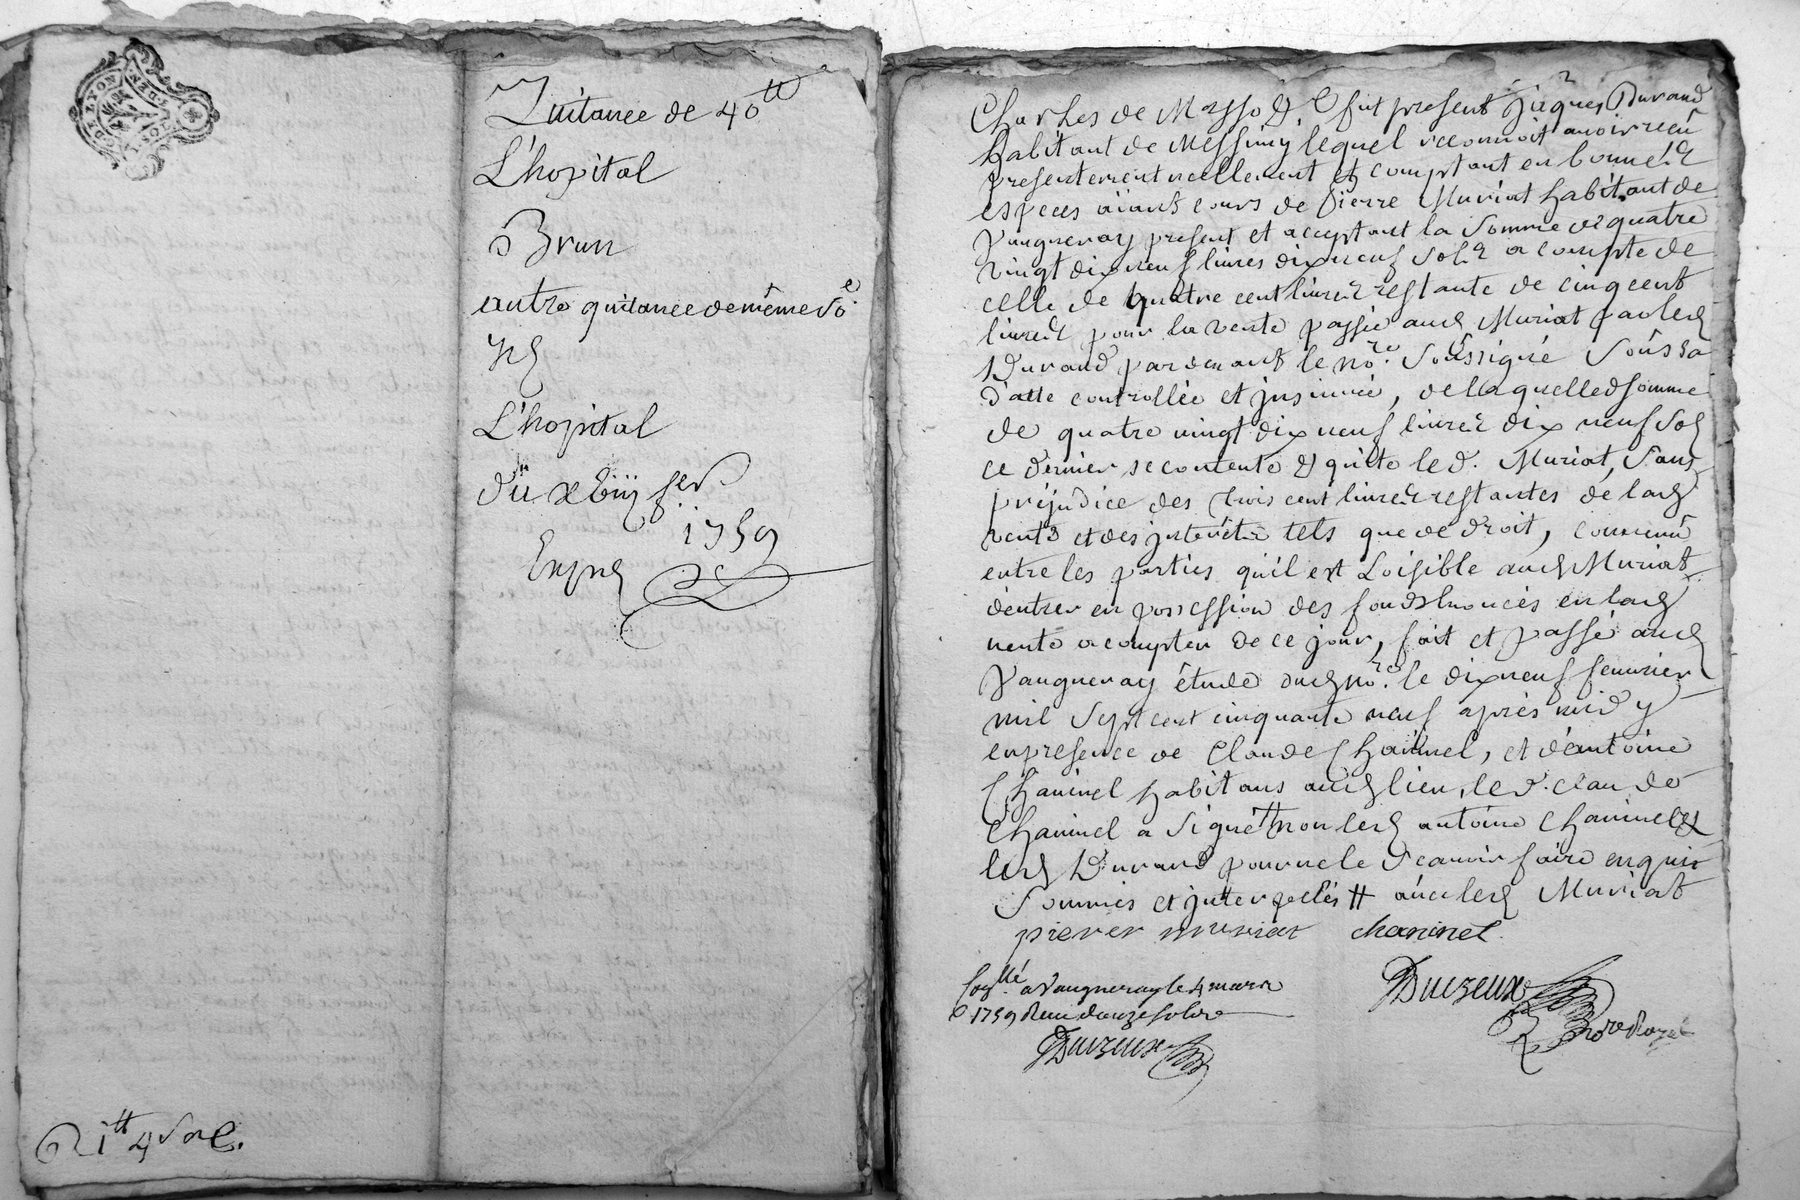 Quitance de 40ᵗᵗ
L'hopital
Brun
autre quitance de même so.ᵉ
L'hopital
Dü xbiij fer
1759
Expné
R 1ᵗᵗ 4 sols
fut present Jacques Durand
habitant de Messimy lequel reconnoit avoir receu
presentement reellement et comptant en bonnes
especes aïant cours de Pierre Muriat habitant de
Vaugneray present et acceptant la somme de quatre
vingt dix neuf livres dix neuf sols a compte de
celle de quatre cent livres restante de cinq cent
livres pour la vente passée aud Muriat par led
Durand pardevant le noʳᵉ soussigné sous sa
datte controllée et jnsinuée, de laquelle d somme
de quatre vingt dix neuf livres dix neuf sols
ce dernier se contente et quitte led. Muriat, sans
préjudice des trois cent livres restantes de lad
vente et des jnterêts tels que de droit, convenu
entre les parties qu'il est Loisible aud Muriat
d'entrer en possession des fonds énoncés en lad
vente a compter de ce jour, fait et passé aud
Vaugneray étude dud noʳᵉ le dix neuf fevrier
mil sept cent cinquante neuf après midy
en presence de Claude Chaninel, et d'éantoine
Chaninel habitans aud lieu, led. claude
Chaninel a signé # non led antoine Chaninel et
led Durand pour ne le scavoir faire enquis
sommés et jnterpellés # avec led Muriat
pierer muriat chaninel
Coᵗˡˡᵉ a Vaugneray le 4 mars
1759 Reçu douze sols
Duezeux
Duezeux
noʳᵉ Royal